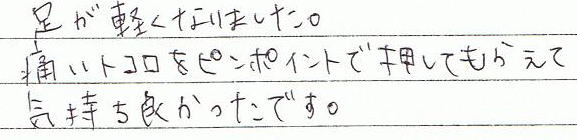 足が軽くなりました。
痛いトコロをピンポイントで押してもらえて
気持ち良かったです。